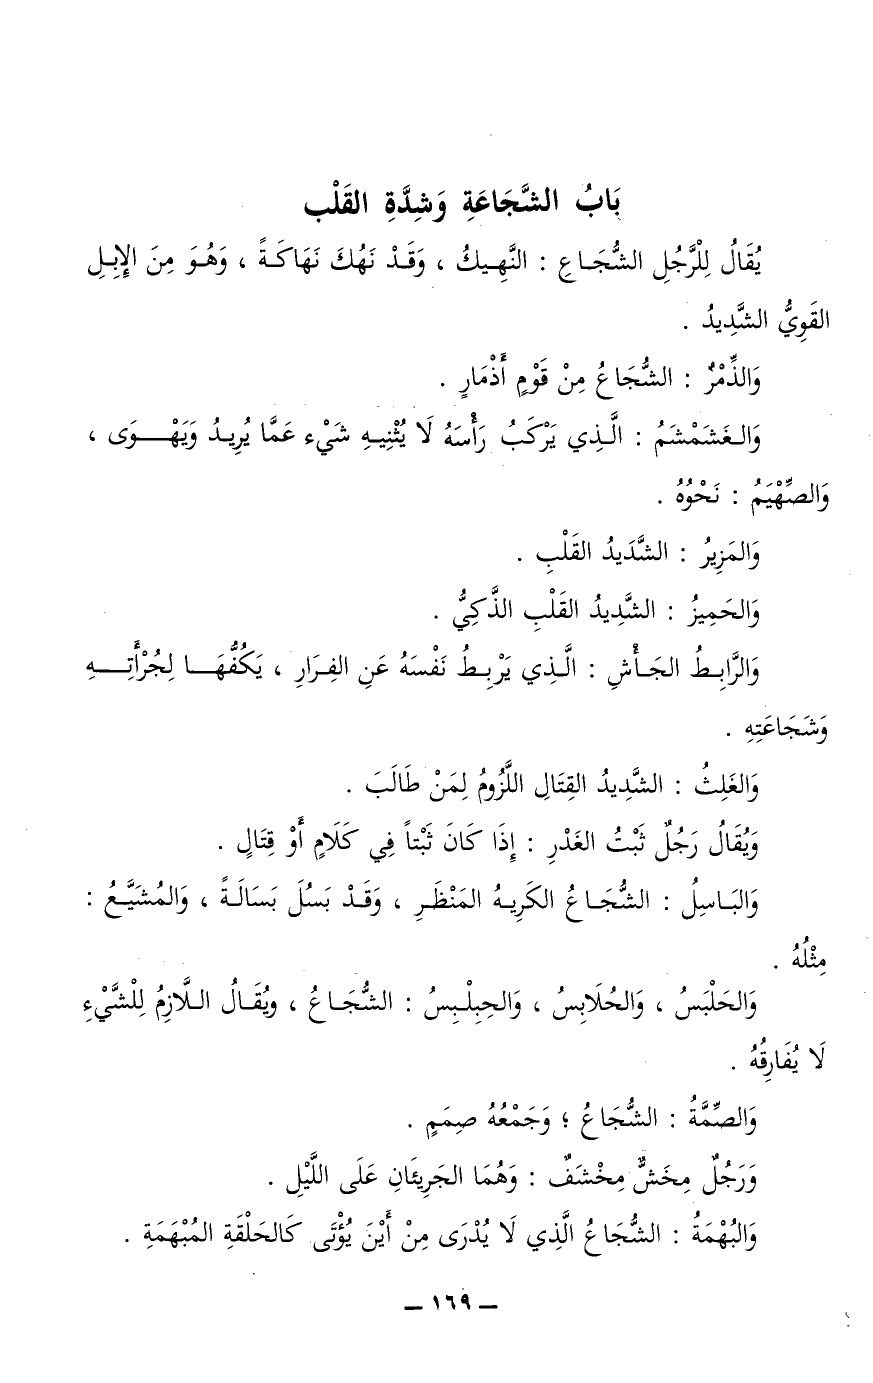 بَابُ الشَّجَاعَةِ وَشِدَّةِ القَلْبِ
يُقَالُ لِلْرَّجُلِ الشُّجَاعِ : النَّهِيكُ ، وَقَدْ نَهُكَ نَهَاكَةً ، وَهُوَ مِنَ الإِبِلِ
القَوِيُّ الشَّدِيدُ .
وَالذِّمْرُ : الشُّجَاعُ مِنْ قَوْمٍ أَذْمَارٍ .
وَالغَشَمْشَمُ : الَّذِي يَرْكَبُ رَأْسَهُ لَا يُثْنِيهِ شَيْء عَمَّا يُرِيدُ وَيَهْوَى ،
وَالصِّهْيَمُ : نَحْوُهُ .
وَالمَزِيرُ : الشَّدِيدُ القَلْبِ .
وَالحَمِيزُ : الشَّدِيدُ القَلْبِ الذَّكِيُّ .
وَالرَّابِطُ الجَأْشِ : الَّذِي يَرْبِطُ نَفْسَهُ عَنِ الفِرَارِ ، يَكُفُّهَا لِجُرْأَتِهِ
وَشَجَاعَتِهِ .
وَالغَلِثُ : الشَّدِيدُ القِتَالِ اللَّزُومُ لِمَنْ طَالَبَ .
وَيُقَالُ رَجُلٌ ثَبْتُ الغَدْرِ : إِذَا كَانَ ثَبْتاً فِي كَلَامٍ أَوْ قِتَالٍ .
وَالبَاسِلُ : الشُّجَاعُ الكَرِيهُ المَنْظَرِ ، وَقَدْ بَسُلَ بَسَالَةً ، وَالمُشَيَّعُ :
مِثْلُهُ .
وَالحَلْبَسُ ، وَالحُلَابِسُ ، وَالحِبِلْبِسُ : الشُّجَاعُ ، ويُقَالُ اللَّازِمُ لِلْشَّيْءِ
لَا يُفَارِقُهُ .
وَالصِّمَّةُ : الشُّجَاعُ ؛ وَجَمْعُهُ صِمَمٍ .
وَرَجُلٌ مِخَشٌّ مِخْشَفٌ : وَهُمَا الجَرِيئَانِ عَلَى اللَّيْلِ .
وَالبُهْمَةُ : الشُّجَاعُ الَّذِي لَا يُدْرَى مِنْ أَيْنَ يُؤْتَى كَالحَلْقَةِ المُبْهَمَةِ .
— ١٦٩ —